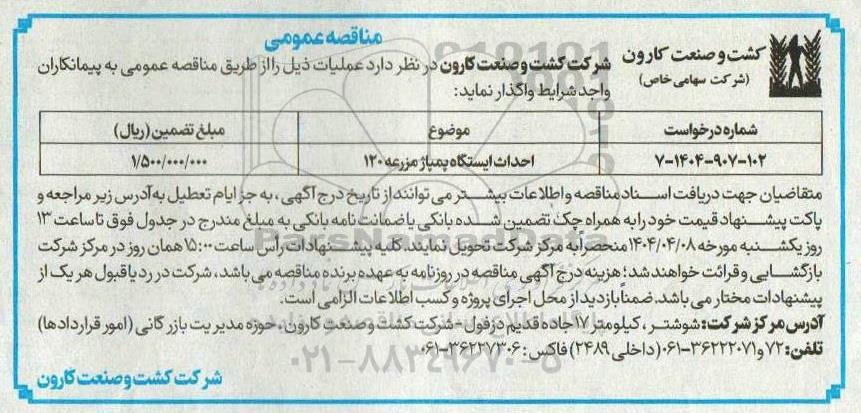 مناقصه عمومی
کشت و صنعت کارون
(شرکت سهامی خاص)
شرکت کشت و صنعت کارون در نظر دارد عملیات ذیل را از طریق مناقصه عمومی به پیمانکاران
واجد شرایط واگذار نماید:
شماره درخواست موضوع مبلغ تضمین (ریال)
۷-۱۴۰۴-۹۰۷-۱۰۲ احداث ایستگاه پمپاژ مزرعه ۱۲۰ ۱/۵۰۰/۰۰۰/۰۰۰
متقاضیان جهت دریافت اسناد مناقصه و اطلاعات بیشتر می توانند از تاریخ درج آگهی، به جز ایام تعطیل به آدرس زیر مراجعه و
پاکت پیشنهاد قیمت خود را به همراه چک تضمین شده بانکی یا ضمانت نامه بانکی به مبلغ مندرج در جدول فوق تا ساعت ۱۳
روز یکشنبه مورخه ۱۴۰۴/۰۴/۰۸ منحصراً به مرکز شرکت تحویل نمایند. کلیه پیشنهادات رأس ساعت ۱۵:۰۰ همان روز در مرکز شرکت
بازگشایی و قرائت خواهند شد؛ هزینه درج آگهی مناقصه در روزنامه به عهده برنده مناقصه می باشد، شرکت در رد یا قبول هر یک از
پیشنهادات مختار می باشد. ضمناً بازدید از محل اجرای پروژه و کسب اطلاعات الزامی است.
آدرس مرکز شرکت: شوشتر، کیلومتر ۱۷ جاده قدیم دزفول - شرکت کشت و صنعت کارون. حوزه مدیریت بازرگانی (امور قراردادها)
تلفن: ۷۲ و ۳۶۲۲۲۰۷۱-۰۶۱ (داخلی ۲۴۸۹) فاکس: ۳۶۲۲۷۳۰۶-۰۶۱
شرکت کشت و صنعت کارون
ParsNamadData
۰۲۱-۸۸۳۴۹۶۷۰-۵